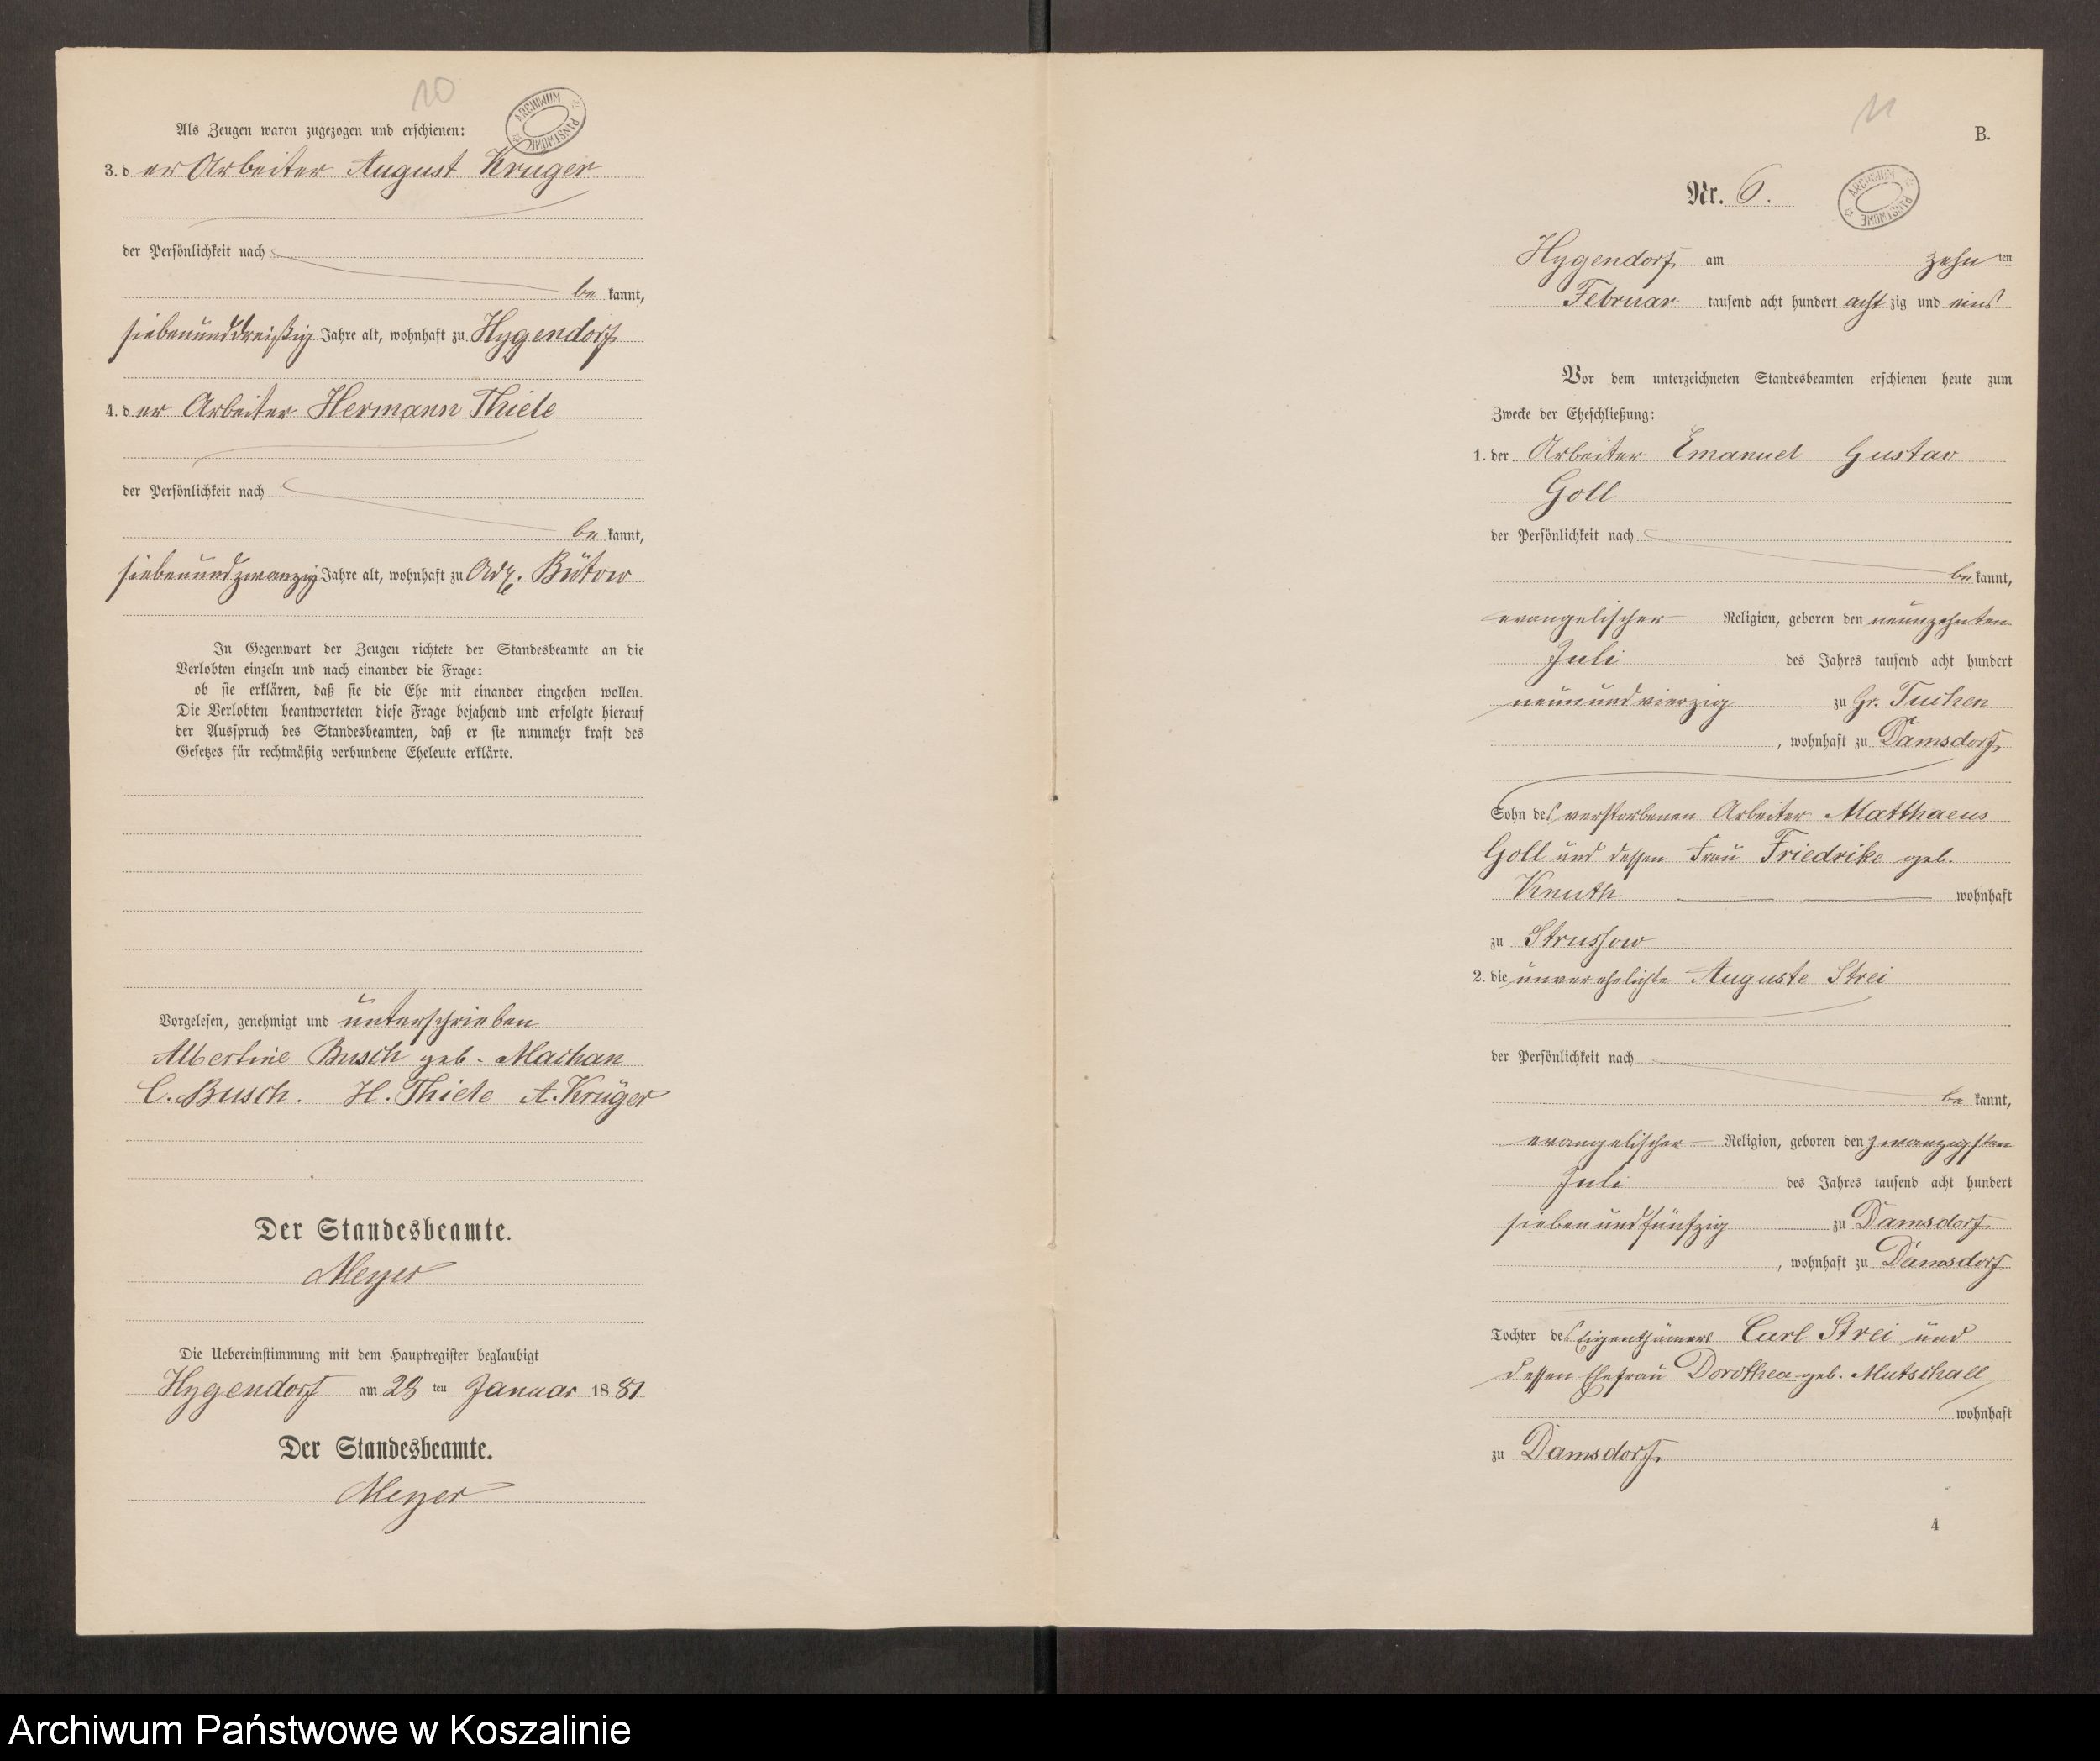 10
ARCHIWUM PAŃSTWOWE
Als Zeugen waren zugezogen und erschienen:
3. der Arbeiter August Krüger
der Persönlichkeit nach
bekannt,
siebenunddreißig Jahre alt, wohnhaft zu Hygendorf
4. der Arbeiter Hermann Thiele
der Persönlichkeit nach
bekannt,
siebenundzwanzig Jahre alt, wohnhaft zu Bütow
In Gegenwart der Zeugen richtete der Standesbeamte an die
Verlobten einzeln und nach einander die Frage:
ob sie erklären, daß sie die Ehe mit einander eingehen wollen.
Die Verlobten beantworteten diese Frage bejahend und erfolgte hierauf
der Ausspruch des Standesbeamten, daß er sie nunmehr kraft des
Gesetzes für rechtmäßig verbundene Eheleute erklärte.
Vorgelesen, genehmigt und unterschrieben
Albertine Busch geb. Machan
C. Busch. H. Thiele A. Krüger
Der Standesbeamte.
Meyer
Die Uebereinstimmung mit dem Hauptregister beglaubigt
Hygendorf am 28 ten Januar 1881
Der Standesbeamte.
Meyer
11
B.
Nr. 6.
ARCHIWUM PAŃSTWOWE
Hygendorf, am zehnten
Februar tausend acht hundert achtzig und eins
Vor dem unterzeichneten Standesbeamten erschienen heute zum
Zwecke der Eheschließung:
1. der Arbeiter Emanuel Gustav
Goll
der Persönlichkeit nach
bekannt,
evangelischer Religion, geboren den neunzehnten
Juli des Jahres tausend acht hundert
neunundvierzig zu Gr. Tuchen
, wohnhaft zu Damsdorf,
Sohn des verstorbenen Arbeiter Matthaeus
Goll und dessen Frau Friedrike geb.
Knuth wohnhaft
zu Strussow
2. die unverehelichte Auguste Strei
der Persönlichkeit nach
bekannt,
evangelischer Religion, geboren den zwanzigsten
Juli des Jahres tausend acht hundert
siebenundfünfzig zu Damsdorf
, wohnhaft zu Damsdorf
Tochter des Eigenthümers Carl Strei und
dessen Ehefrau Dorothea geb. Mutschall
wohnhaft
zu Damsdorf.
4
Archiwum Państwowe w Koszalinie